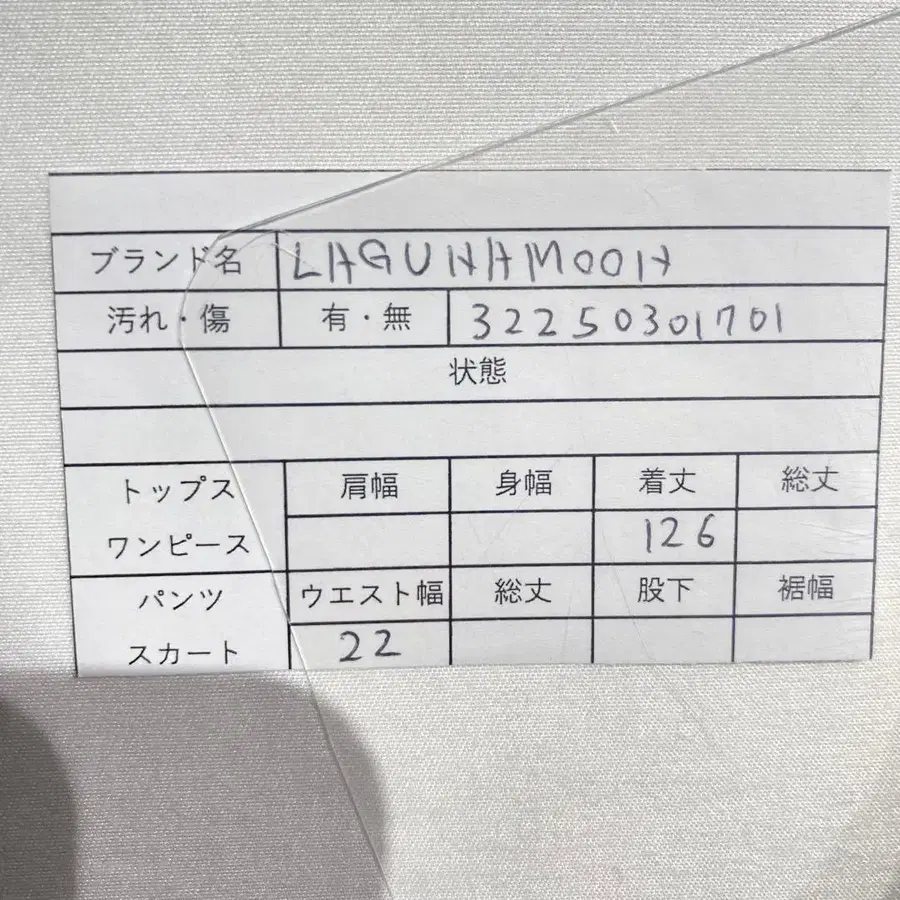 ブランド名 LAGUNAMOON
汚れ・傷 有・無 032250301701
状態
トップス 肩幅 身幅 着丈 総丈
ワンピース 126
パンツ ウエスト幅 総丈 股下 裾幅
スカート 22